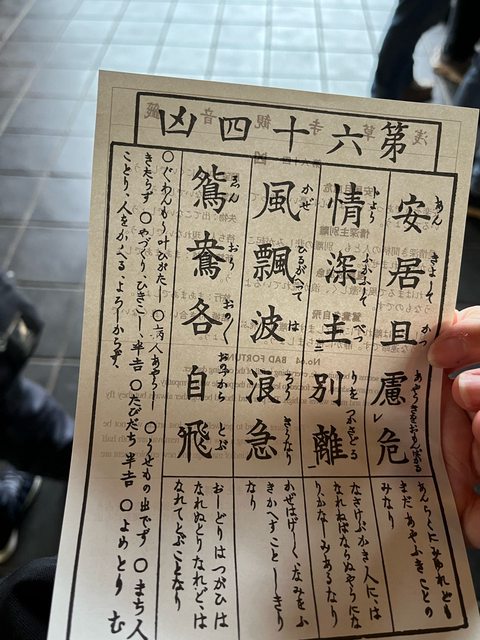 第六十四凶
安居且慮危
あん きよして かつ あやうきをおもんばかる
情深主別離
ふかふして べつ りをつかさどる
風飄波浪急
かぜ ひるがへつて は らう きうなり
鴛鴦各自飛
ゑん おう おの〱 おのづから とぶ
あんらくにみゆれども
まだあやふきことの
みなり
なさけふかき人には
なれねばならぬやうにな
りかなしみあるなり
かぜはげしくなみをふ
きかへすことしきり
なり
おしどりはつがひは
なれぬとりなれど、は
なれてとぶことなり
〇ぐわんもう叶ひがた 〇病人あやうし 〇うせもの出でず 〇まち人
きたらず 〇やづくり、ひきこし半吉 〇たびだち半吉 〇よめとりむ
ことり、人をかゝへるよろしからず。
No.64 BAD FORTUNE